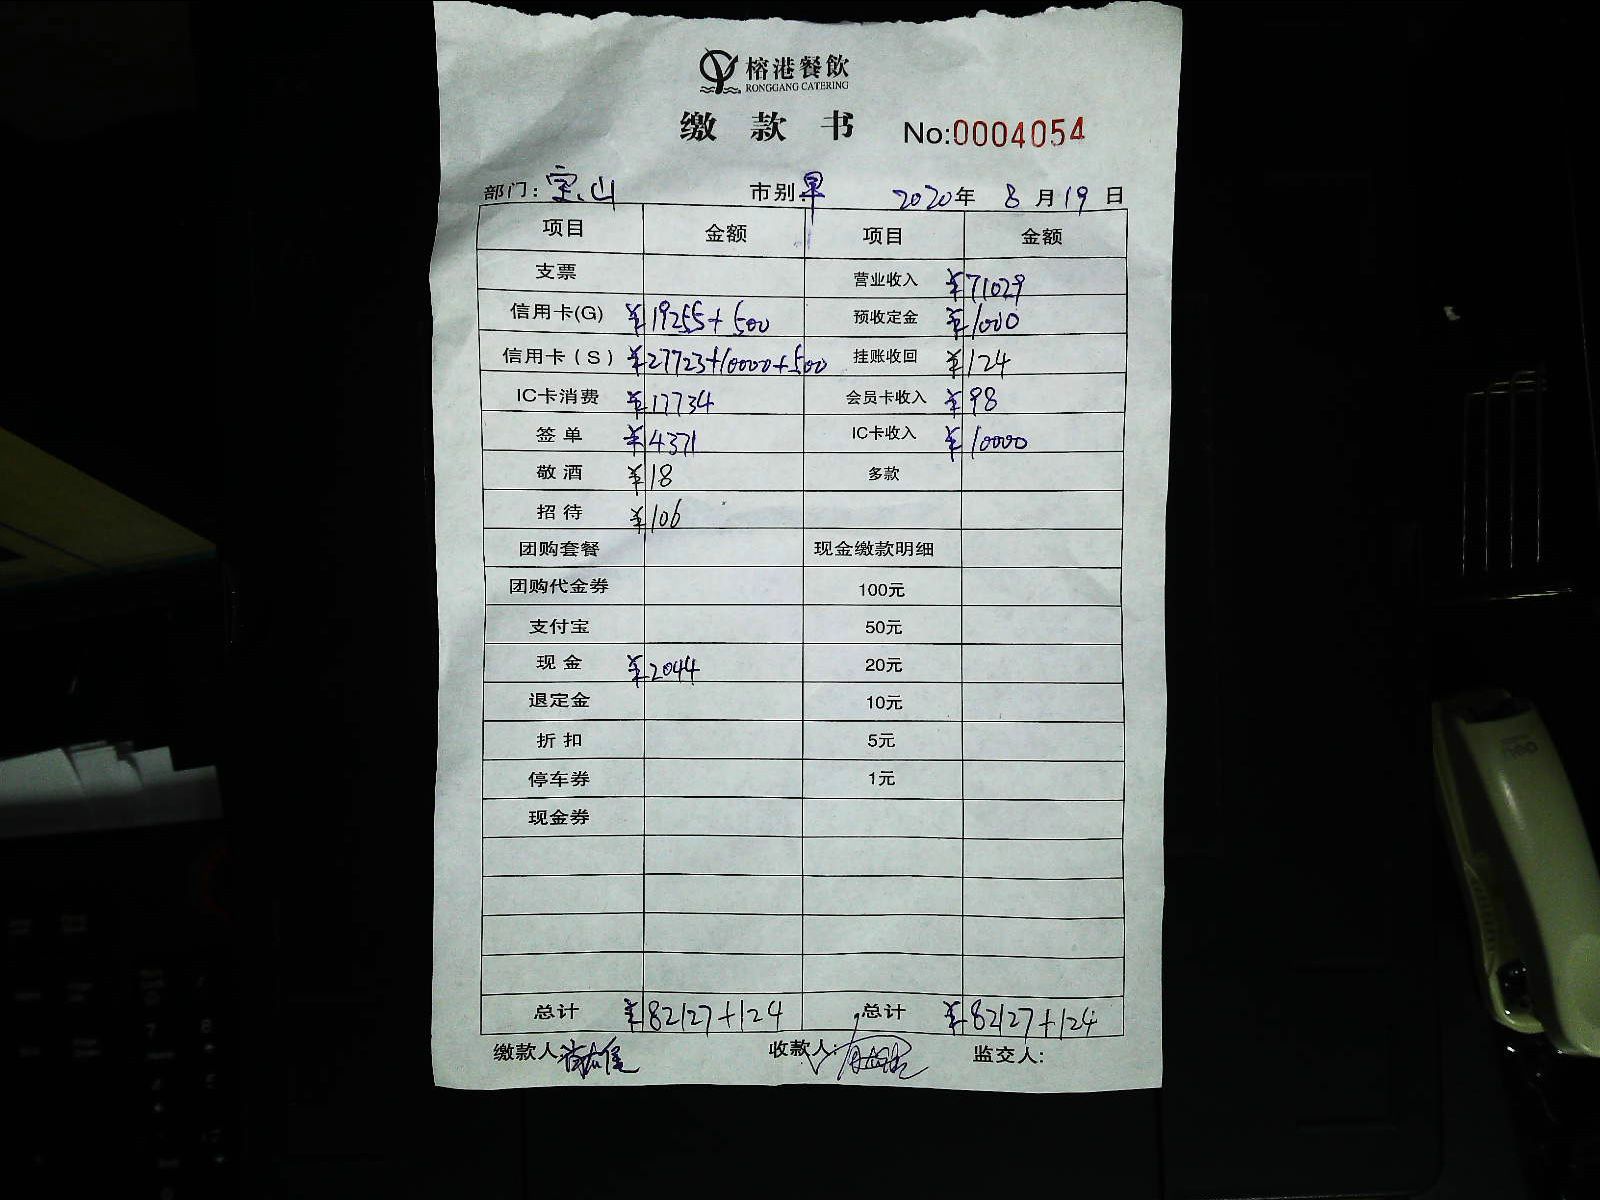 榕港餐飲
RONGGANG CATERING
缴款书 No:0004054
部门: 宝山 市别: 早 2020年 8月19日
项目 金额 项目 金额
支票 营业收入 ¥71029
信用卡(G) ¥19255+500 预收定金 ¥1000
信用卡(S) ¥27723+10000+500 挂账收回 ¥124
IC卡消费 ¥17734 会员卡收入 ¥98
签单 ¥4371 IC卡收入 ¥10000
敬酒 ¥18 多款
招待 ¥106
团购套餐 现金缴款明细
团购代金券 100元
支付宝 50元
现金 ¥2044 20元
退定金 10元
折扣 5元
停车券 1元
现金券
总计 ¥82127+124 总计 ¥82127+124
缴款人: 收款人: 监交人: